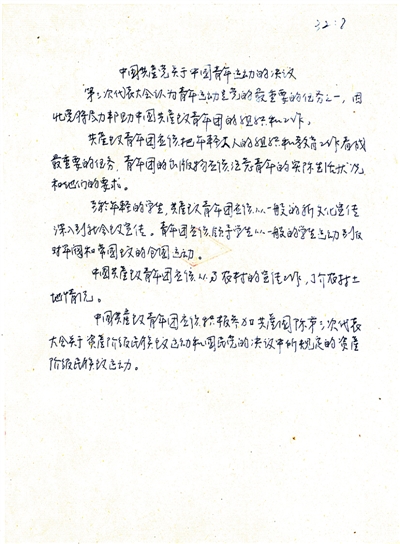 中国共产党关于中国青年运动的决议
第三次代表大会认为青年运动是党的最重要的任务之一，因
此党将尽力帮助中国共产主义青年团的组织和工作。
共产主义青年团应该把年轻工人的组织和教育工作看成
最重要的任务，青年团的出版物应该注意青年的实际生活状况
和他们的要求。
对于年轻的学生，共产主义青年团应该从一般的新文化宣传
深入到社会主义宣传。青年团应该领导学生从一般的学生运动到反
对军阀和帝国主义的全国运动。
中国共产主义青年团应该从事农村的宣传工作，了解农村土
地情况。
中国共产主义青年团应该积极参加共产国际第三次代表
大会关于资产阶级民族主义运动和国民党的决议中所规定的资产
阶级民族主义运动。